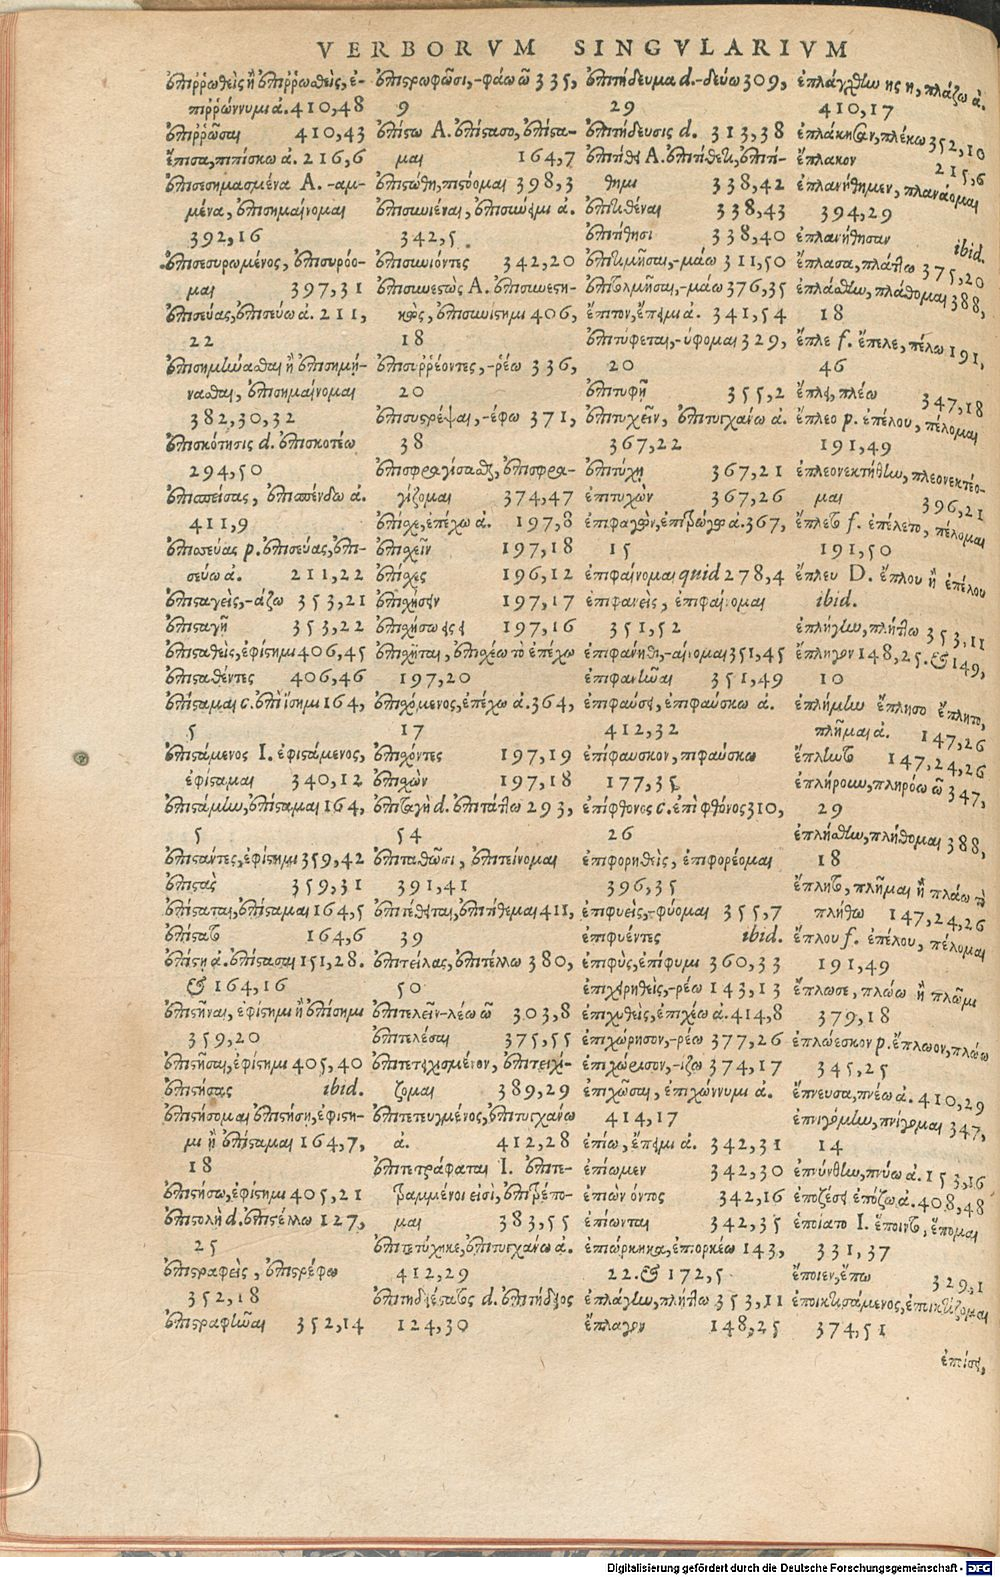 VERBORVM SINGVLARIVM
ἐπιῤῥωθεὶς ἢ ἐπιῤῥωσθεὶς, ἐ-
πιῤῥώννυμι ἀ. 410,48
ἐπιῤῥῶσαι 410,43
ἔπισα, πιπίσκω ἀ. 216,6
ἐπισεσημασμένα A. -αμ-
μένα, ἐπισημαίνομαι
392,16
ἐπισεσυρωμένος, ἐπισυρόο-
μαι 397,31
ἐπισεύας, ἐπισεύω ἀ. 211,
22
ἐπισημήνασθαι, ἐπισημαίνομαι
382,30,32
ἐπισκότησις d. ἐπισκοτέω
294,50
ἐπισπείσας, ἐπισπένδω ἀ.
411,9
ἐπισσεύας p. ἐπισεύας, ἐπι-
σεύω ἀ. 211,22
ἐπισαγεὶς, -άζω 353,21
ἐπισαγῇ 353,22
ἐπισταθεὶς, ἐφίστημι 406,45
ἐπισταθέντες 406,46
ἐπίσταμαι c. ἐπὶ ἵσημι 164,
5
ἐπιστάμενος I. ἐφιστάμενος,
ἐφίσταμαι 340,12
ἐπιστάμην, ἐπίσταμαι 164,
5
ἐπιστάντες, ἐφίστημι 359,42
ἐπιστὰς 359,31
ἐπίσταται, ἐπίσταμαι 164,5
ἐπίστατο 164,6
ἐπίστῃ ἀ. ἐπίστασαι 151,28.
& 164,16
ἐπιστῆναι, ἐφίστημι ἢ ἐπίστημι
359,20
ἐπιστῆσαι, ἐφίστημι 405,40
ἐπιστήσας ibid.
ἐπιστήσομαι ἐπιστήσῃ, ἐφίστη-
μι ἢ ἐπίσταμαι 164,7,
18
ἐπιστήσω, ἐφίστημι 405,21
ἐπιστολὴ d. ἐπιστέλλω 127,
25
ἐπιστραφεὶς, ἐπιστρέφω
352,18
ἐπιστραφῶσαι 352,14
ἐπιστρωφῶσι, -φάω ῶ 335,
9
ἐπίστω A. ἐπίστασο, ἐπίστα-
μαι 164,7
ἐπιστώθη, πιστόομαι 398,3
ἐπισυνιέναι, ἐπισύνειμι ἀ.
342,5
ἐπισυνιόντες 342,20
ἐπισυνεστὼς A. ἐπισυνεστη-
κὼς, ἐπισυνίστημι 406,
18
ἐπισυῤῥέοντες, -ῥέω 336,
20
ἐπισυστρέψαι, -έφω 371,
38
ἐπισφραγίσασθαι, ἐπισφρα-
γίζομαι 374,47
ἐπίσχε, ἐπέχω ἀ. 197,8
ἐπισχεῖν 197,18
ἐπίσχες 196,12
ἐπισχήσειν 197,17
ἐπισχήσω εις ει 197,16
ἐπισχῆται, ἐπισχέω τὸ ἐπέχω
197,20
ἐπισχόμενος, ἐπέχω ἀ. 364,
17
ἐπισχόντες 197,19
ἐπισχὼν 197,18
ἐπιταγὴ d. ἐπιτάττω 293,
54
ἐπιταθῶσι, ἐπιτείνομαι
391,41
ἐπιτέθειται, ἐπιτίθεμαι 411,
39
ἐπιτείλας, ἐπιτέλλω 380,
50
ἐπιτελεῖν -λέω ῶ 303,8
ἐπιτελέσαι 375,55
ἐπιτετειχισμένον, ἐπιτειχί-
ζομαι 389,29
ἐπιτετευγμένος, ἐπιτυγχάνω
ἀ. 412,28
ἐπιτετράφαται I. ἐπιτε-
τραμμένοι εἰσὶ, ἐπιτρέπο-
μαι 383,55
ἐπιτετύχηκε, ἐπιτυγχάνω ἀ.
412,29
ἐπιτηδειέστατος d. ἐπιτήδειος
124,30
ἐπιτήδευμα d. -δεύω 309,
29
ἐπιτήδευσις d. 313,38
ἐπιτίθει A. ἐπιτίθετι, ἐπιτί-
θημι 338,42
ἐπιτιθέναι 338,43
ἐπιτίθησι 338,40
ἐπιτιμῆσαι, -μάω 311,50
ἐπιτολμῆσαι, -μάω 376,35
ἔπιτον, ἔπειμι ἀ. 341,54
ἐπιτύφεται, -ύφομαι 329,
20
ἐπιτυφῇ 355,2
ἐπιτυχεῖν, ἐπιτυγχάνω ἀ.
367,22
ἐπιτύχῃ 367,21
ἐπιτυχὼν 367,26
ἐπιφαγεῖν, ἐπιτρώγω ἀ. 367,
15
ἐπιφαίνομαι quid 278,4
ἐπιφανεὶς, ἐπιφαίνομαι
351,52
ἐπιφάνηθι, -αίνομαι 351,45
ἐπιφανῶσαι 351,49
ἐπιφαύσει, ἐπιφαύσκω ἀ.
412,32
ἐπίφαυσκον, πιφαύσκω
177,35
ἐπίφθονος c. ἐπὶ φθόνος 310,
26
ἐπιφορηθεὶς, ἐπιφορέομαι
396,35
ἐπιφυεὶς, -φύομαι 355,7
ἐπιφυέντες ibid.
ἐπιφὺς, ἐπίφυμι 360,33
ἐπιχειρηθεὶς, -ρέω 143,13
ἐπιχυθεὶς, ἐπιχέω ἀ. 414,8
ἐπιχώρησον, -ρέω 377,26
ἐπιχώρισον, -ίζω 374,17
ἐπιχῶσαι, ἐπιχώννυμι ἀ.
414,17
ἐπίω, ἔπειμι ἀ. 342,31
ἐπίωμεν 342,30
ἐπιὼν όντος 342,16
ἐπίωνται 342,35
ἐπιώρκηκα, ἐπιορκέω 143,
22. & 172,5
ἐπλάγην, πλήττω 353,11
ἔπλαγον 148,25
ἐπλάγχθην ης η, πλάζω ἀ.
410,17
ἐπλάκησαν, πλέκω 352,10
ἔπλακον 215,6
ἐπλανήθημεν, πλανάομαι
394,29
ἐπλανήθησαν ibid.
ἔπλασα, πλάττω 375,20
ἐπλάσθην, πλάθομαι 388,
18
ἔπλε f. ἔπελε, πέλω 191,
46
ἔπλει, πλέω 347,18
ἔπλεο p. ἐπέλου, πέλομαι
191,49
ἐπλεονεκτήθην, πλεονεκτέο-
μαι 396,21
ἔπλετο f. ἐπέλετο, πέλομαι
191,50
ἔπλευ D. ἔπλου ἢ ἐπέλου
ibid.
ἐπλήγην, πλήττω 353,11
ἔπληγον 148,25. & 149,
10
ἐπλήμην ἔπλησο ἔπλητο,
πλῆμαι ἀ. 147,26
ἔπληντο 147,24,26
ἐπλήρουν, πληρόω ῶ 347,
29
ἐπλήσθην, πλήθομαι 388,
18
ἔπλητο, πλῆμαι ἢ πλάω τὸ
πλήθω 147,24,26
ἔπλου f. ἐπέλου, πέλομαι
191,49
ἔπλωσε, πλώω ἢ πλῶμι
379,18
ἐπλώεσκον p. ἔπλωον, πλώω
345,25
ἔπνευσα, πνέω ἀ. 410,29
ἐπνιγόμην, πνίγομαι 347,
14
ἐπνύνθην, πνύω ἀ. 153,16
ἐποζέσει ἐπόζω ἀ. 408,48
ἑποίατο I. ἕποιντο, ἕπομαι
331,37
ἔποιεν, ἔπω 329,1
ἐποικτισάμενος, ἐποικτίζομαι
374,51
ἐποίσει,
Digitalisierung gefördert durch die Deutsche Forschungsgemeinschaft - DFG